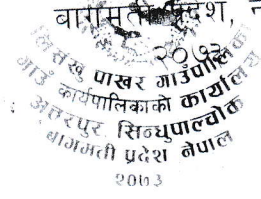 बागमती प्रदेश, न
२०७३
लिसंखु पाखर गाउँपालिका
गाउँ कार्यपालिकाको कार्यालय
अत्तरपुर, सिन्धुपाल्चोक
बागमती प्रदेश नेपाल
२०७३